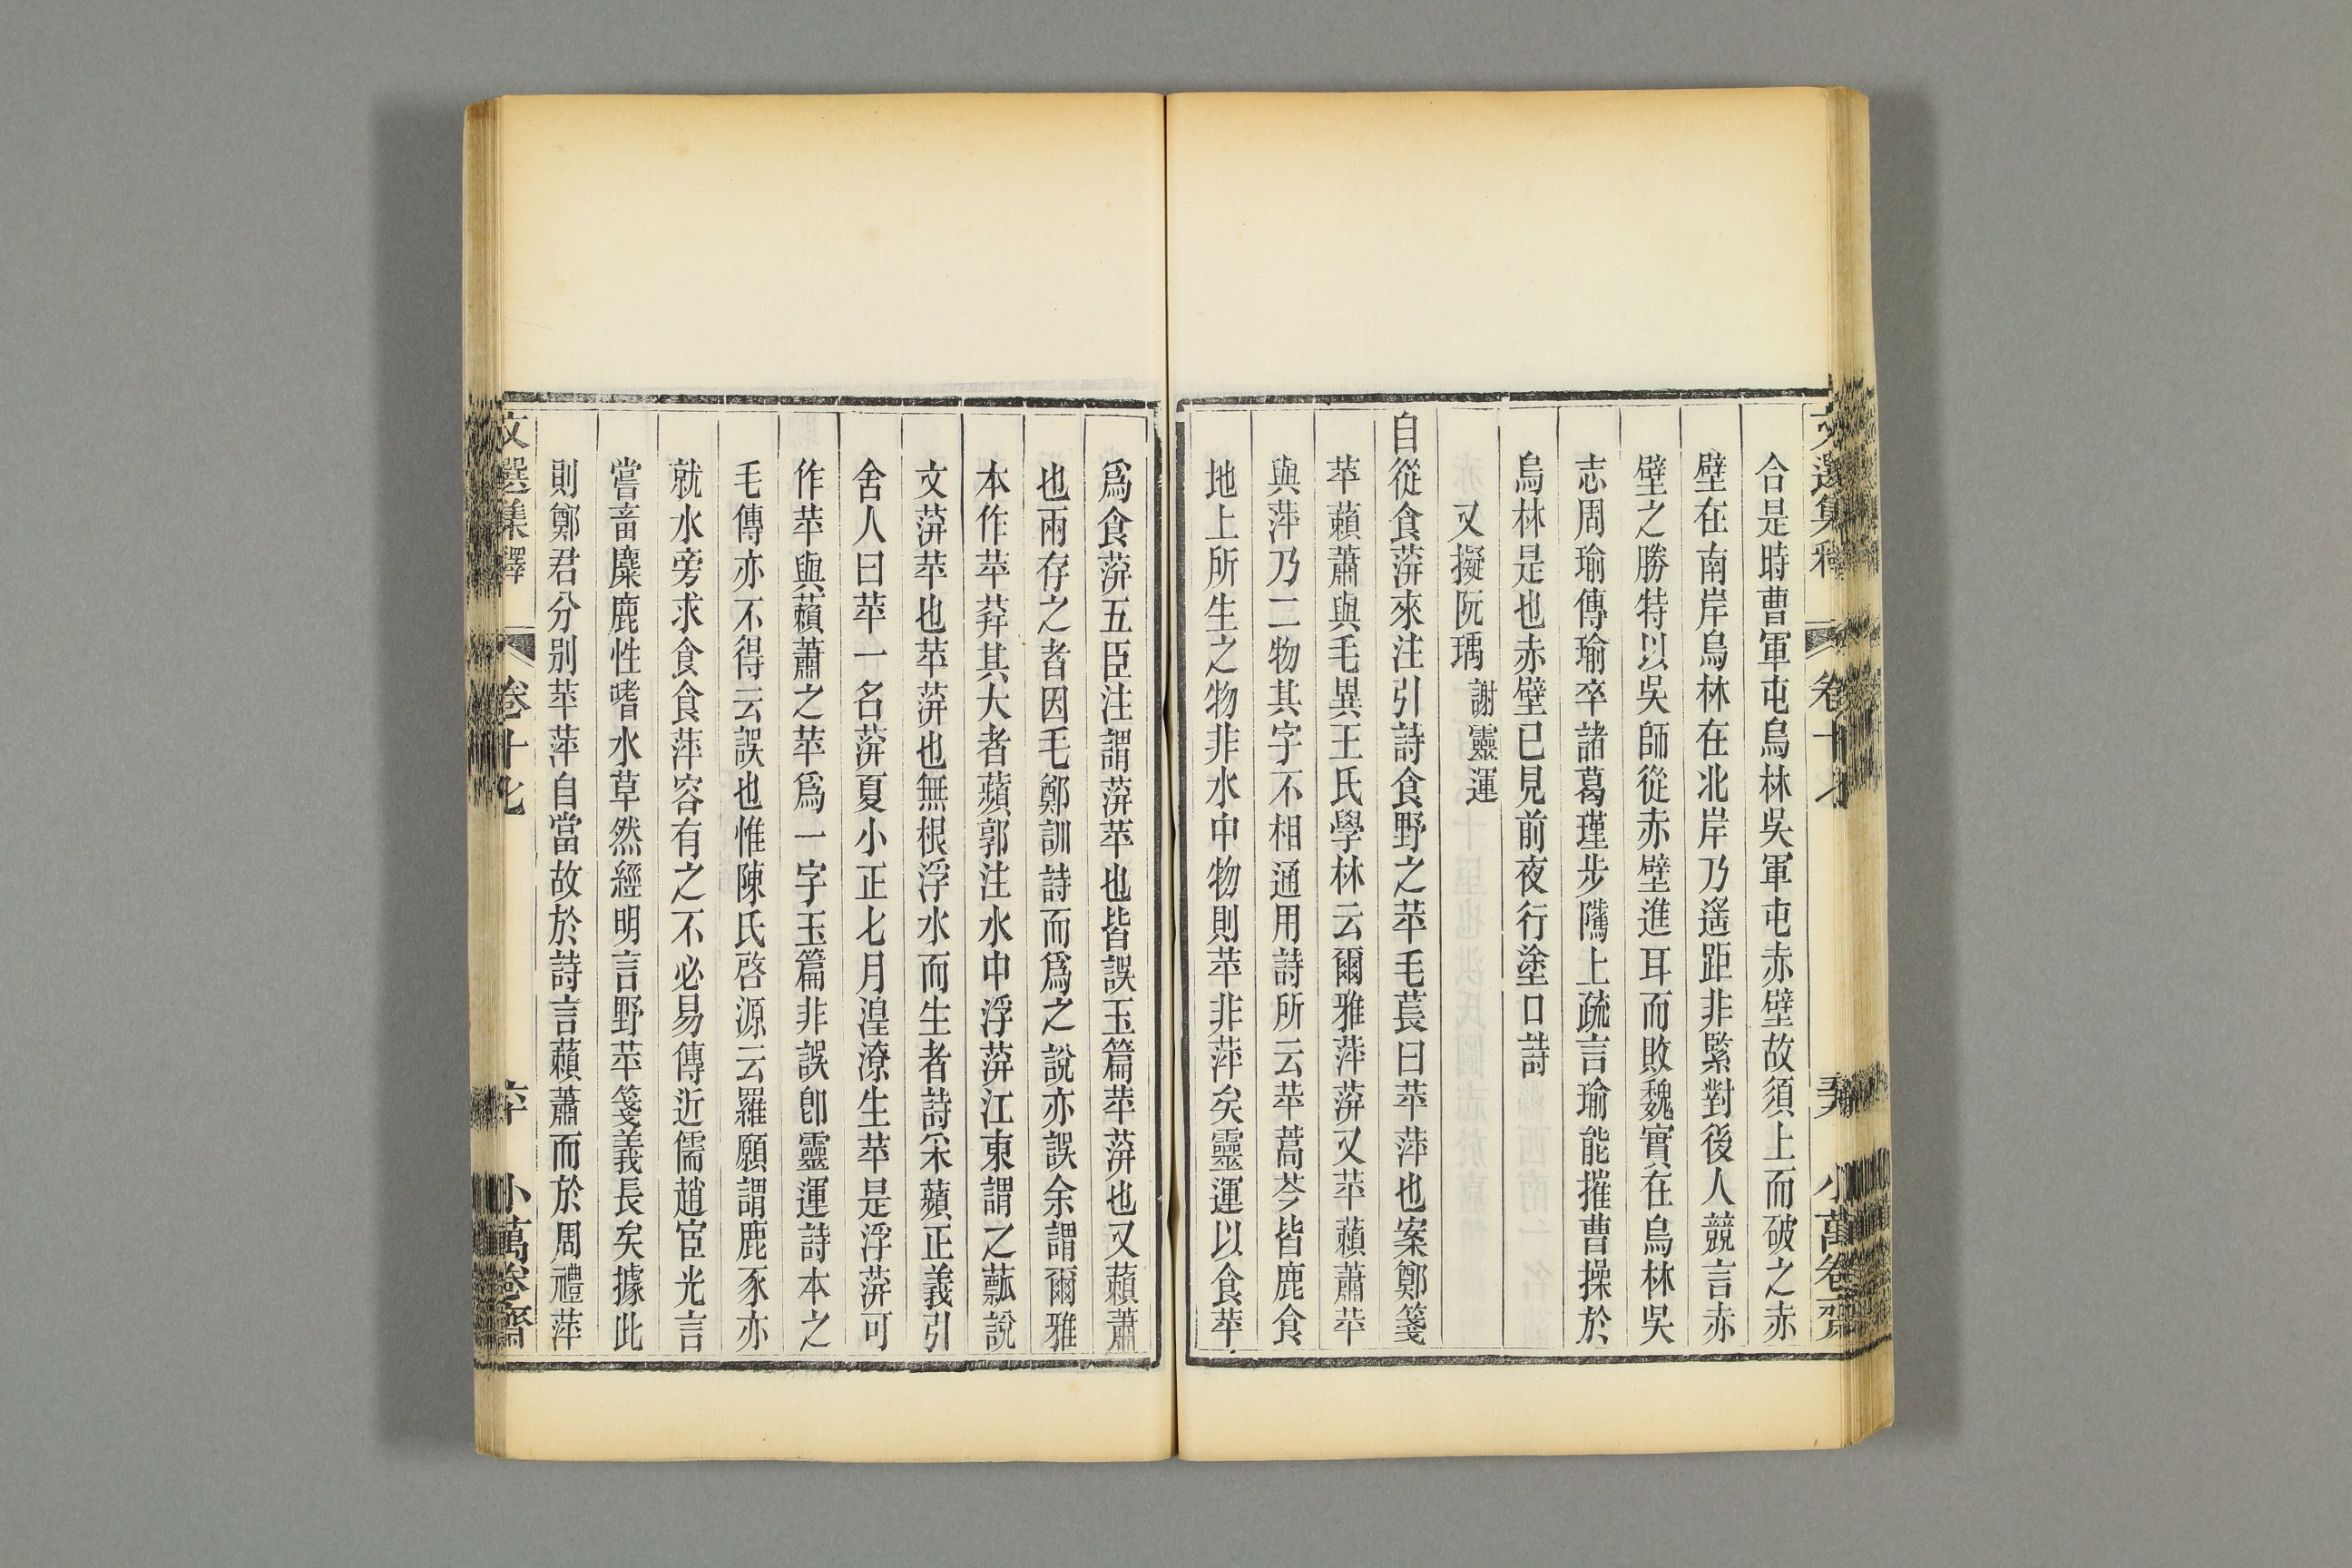 文選集釋 卷十七 小萬卷齋
合是時曹軍屯烏林吳軍屯赤壁故須上而破之赤
壁在南岸烏林在北岸乃遙距非緊對後人競言赤
壁之勝特以吳師從赤壁進耳而敗魏實在烏林吳
志周瑜傳瑜卒諸葛瑾步隲上疏言瑜能摧曹操於
烏林是也赤壁已見前夜行塗口詩
又擬阮瑀 謝靈運
自從食蓱來注引詩食野之苹毛萇曰苹萍也案鄭箋
苹藾蕭與毛異王氏學林云爾雅萍蓱又苹藾蕭苹
與萍乃二物其字不相通用詩所云苹蒿芩皆鹿食
地上所生之物非水中物則苹非萍矣靈運以食苹
爲食蓱五臣注謂蓱苹也皆誤玉篇苹蓱也又藾蕭
也兩存之者因毛鄭訓詩而爲之說亦誤余謂爾雅
本作苹蓱其大者蘋郭注水中浮蓱江東謂之薸說
文蓱苹也苹蓱也無根浮水而生者詩采蘋正義引
舍人曰苹一名蓱夏小正七月湟潦生苹是浮蓱可
作苹與藾蕭之苹爲一字玉篇非誤卽靈運詩本之
毛傳亦不得云誤也惟陳氏啓源云羅願謂鹿豕亦
就水旁求食食萍容有之不必易傳近儒趙宧光言
嘗畜麋鹿性嗜水草然經明言野苹箋義長矣據此
則鄭君分别苹萍自當故於詩言藾蕭而於周禮萍
文選集釋 卷十七 小萬卷齋